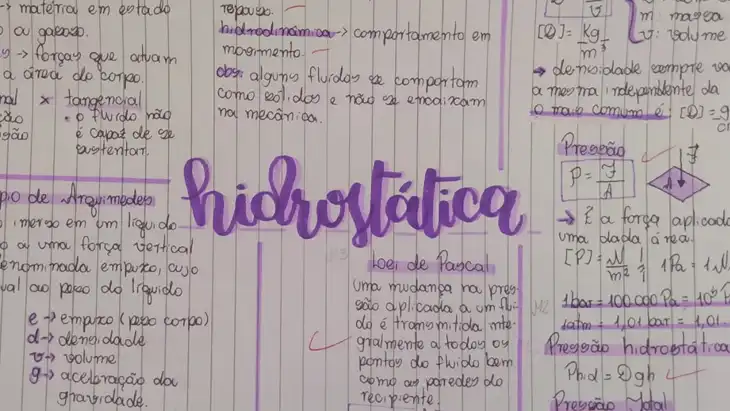 → matéria em estado
ou gasoso.
→ forças que atuam
a área do corpo.
x tangencial
• o fluido não
é capaz de se
sustentar.
repouso.
hidrodinâmica → comportamento em
movimento.
obs: alguns fluidos se comportam
como sólidos e não se encaixam
na mecânica.
V
[D] = kg
m³
m: massa
v: volume
→ densidade sempre
a mesma independente da
o mais comum é: [D] = g
hidrostática
de Arquimedes
imerso em um líquido
a uma força vertical
denominada empuxo, cujo
ao peso do líquido
e → empuxo (peso corpo)
d → densidade
v → volume
g → aceleração da
gravidade.
Lei de Pascal
uma mudança na pres-
são aplicada a um flui-
do é transmitida inte-
gralmente a todos os
pontos do fluido bem
como as paredes do
recipiente.
Pressão
P = F
A
F
A
→ É a força aplicada
uma dada área.
[P] = N
m²
1Pa = 1N
1bar = 100.000 Pa = 10⁵ P
1atm = 1,01 bar = 1,01
Pressão hidrostática
Phid = Dgh
Pressão Total